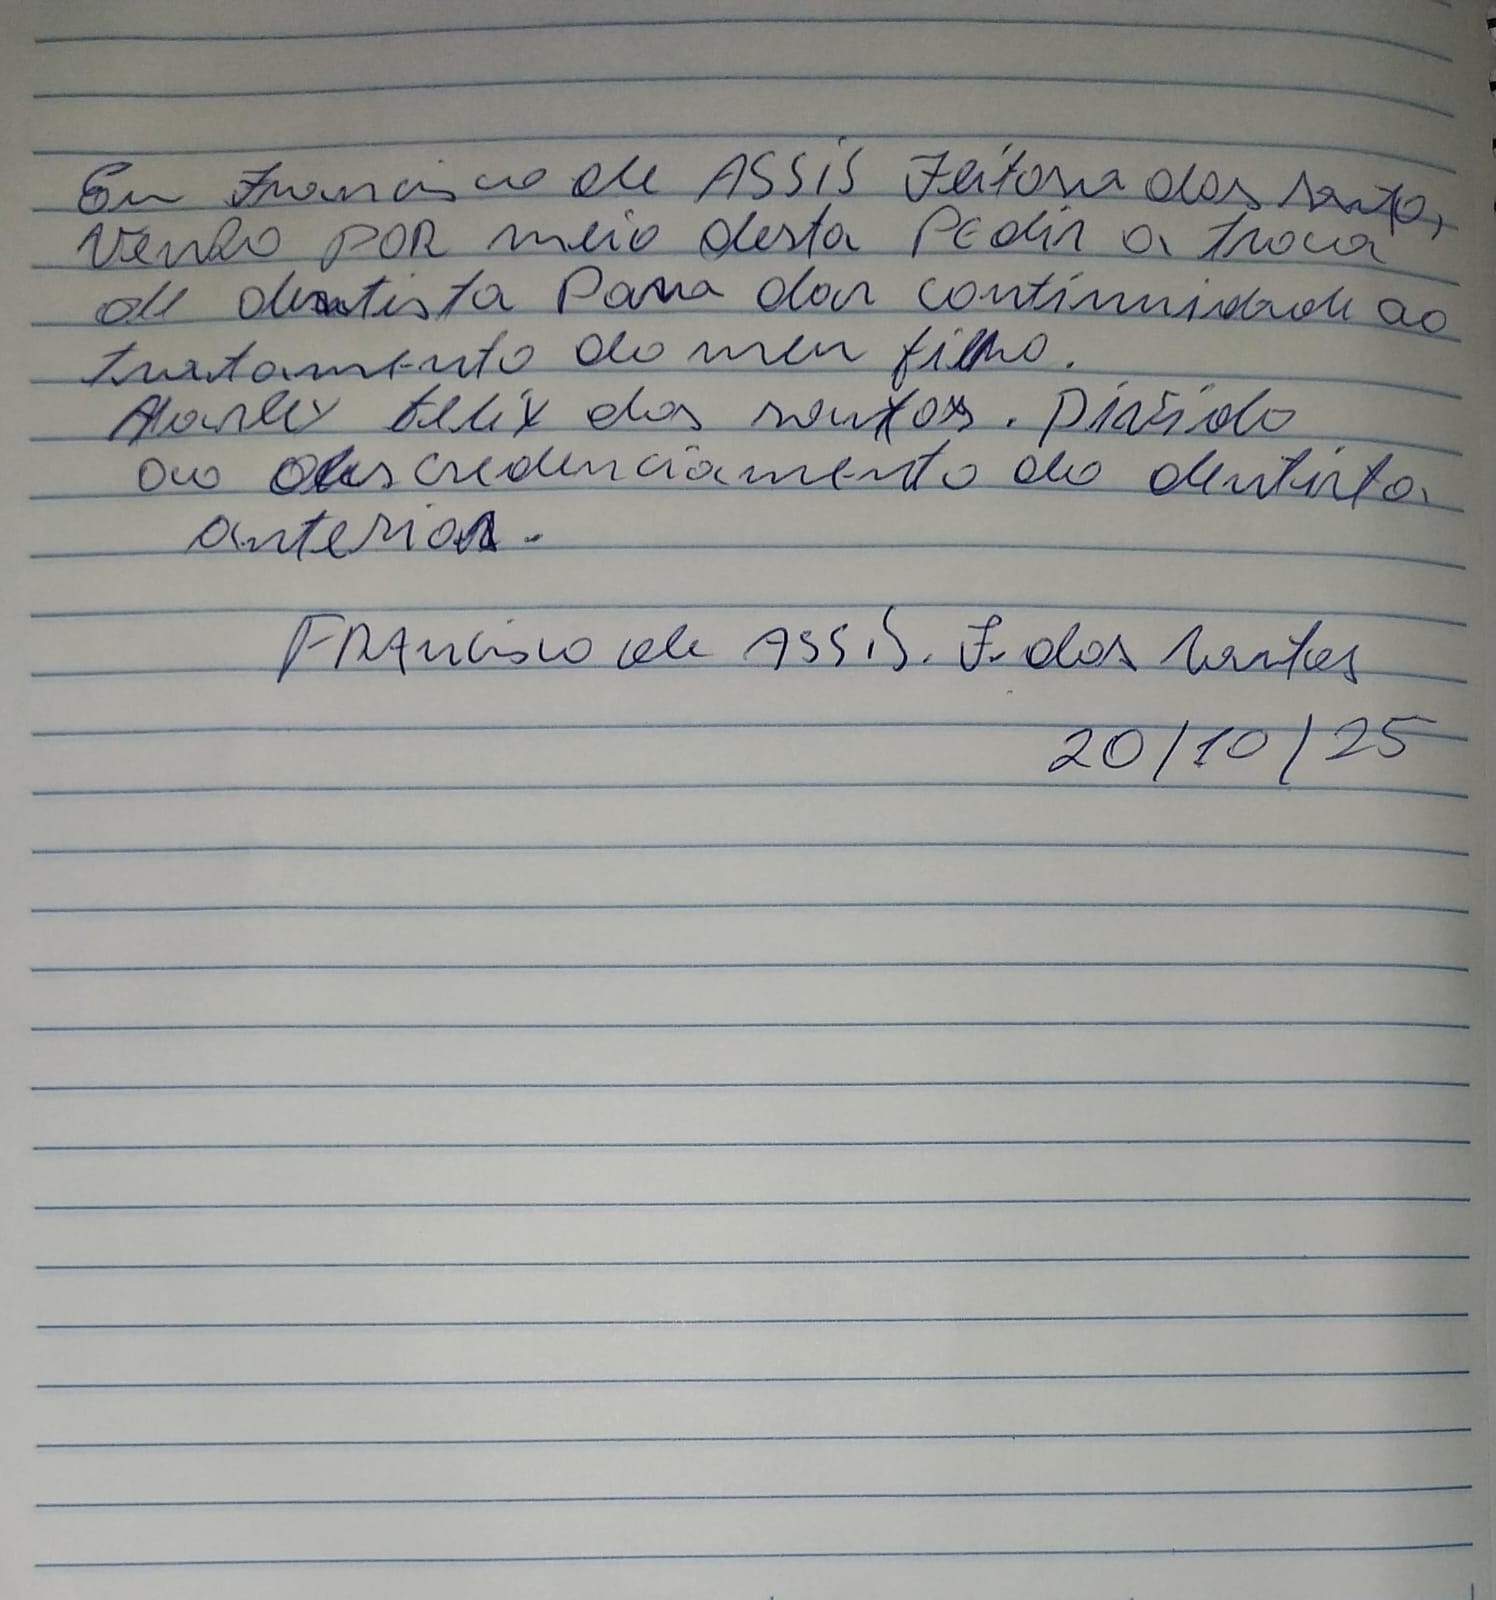 Eu Francisco de ASSIS Feitosa dos santos,
Venho POR meio desta Pedir a troca
de dentista Para dar continuidade ao
tratamento do meu filho.
felix dos santos. Divido
ao descredenciamento do dentista
anterior.
FRANcisco de ASSIS. F. dos santos
20/10/25